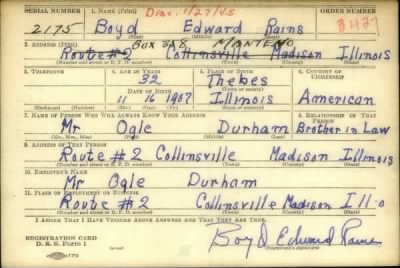 SERIAL NUMBER 1. NAME (Print) ORDER NUMBER
Disc. 1/27/45
2175 Boyd Edward Rains 3427
(First) (Middle) (Last)
2. ADDRESS (Print) Box 228 MANTENO
Route #2 Collinsville Madison Illinois
(Number and street or R. F. D. number) (Town) (County) (State)
3. TELEPHONE 4. AGE IN YEARS 5. PLACE OF BIRTH 6. COUNTRY OF CITIZENSHIP
32 Thebes
DATE OF BIRTH (Town or county)
11 16 1907 Illinois American
(Exchange) (Number) (Mo.) (Day) (Yr.) (State or country)
7. NAME OF PERSON WHO WILL ALWAYS KNOW YOUR ADDRESS 8. RELATIONSHIP OF THAT PERSON
Mr Ogle Durham Brother in Law
(Mr., Mrs., Miss) (First) (Middle) (Last)
9. ADDRESS OF THAT PERSON
Route #2 Collinsville Madison Illinois
(Number and street or R. F. D. number) (Town) (County) (State)
10. EMPLOYER'S NAME
Mr Ogle Durham
11. PLACE OF EMPLOYMENT OR BUSINESS
Route #2 Collinsville Madison
(Number and street or R. F. D. number) (Town) (County) (State)
I AFFIRM THAT I HAVE VERIFIED ABOVE ANSWERS AND THAT THEY ARE TRUE.
REGISTRATION CARD
D. S. S. Form 1
Boyd Edward Rains